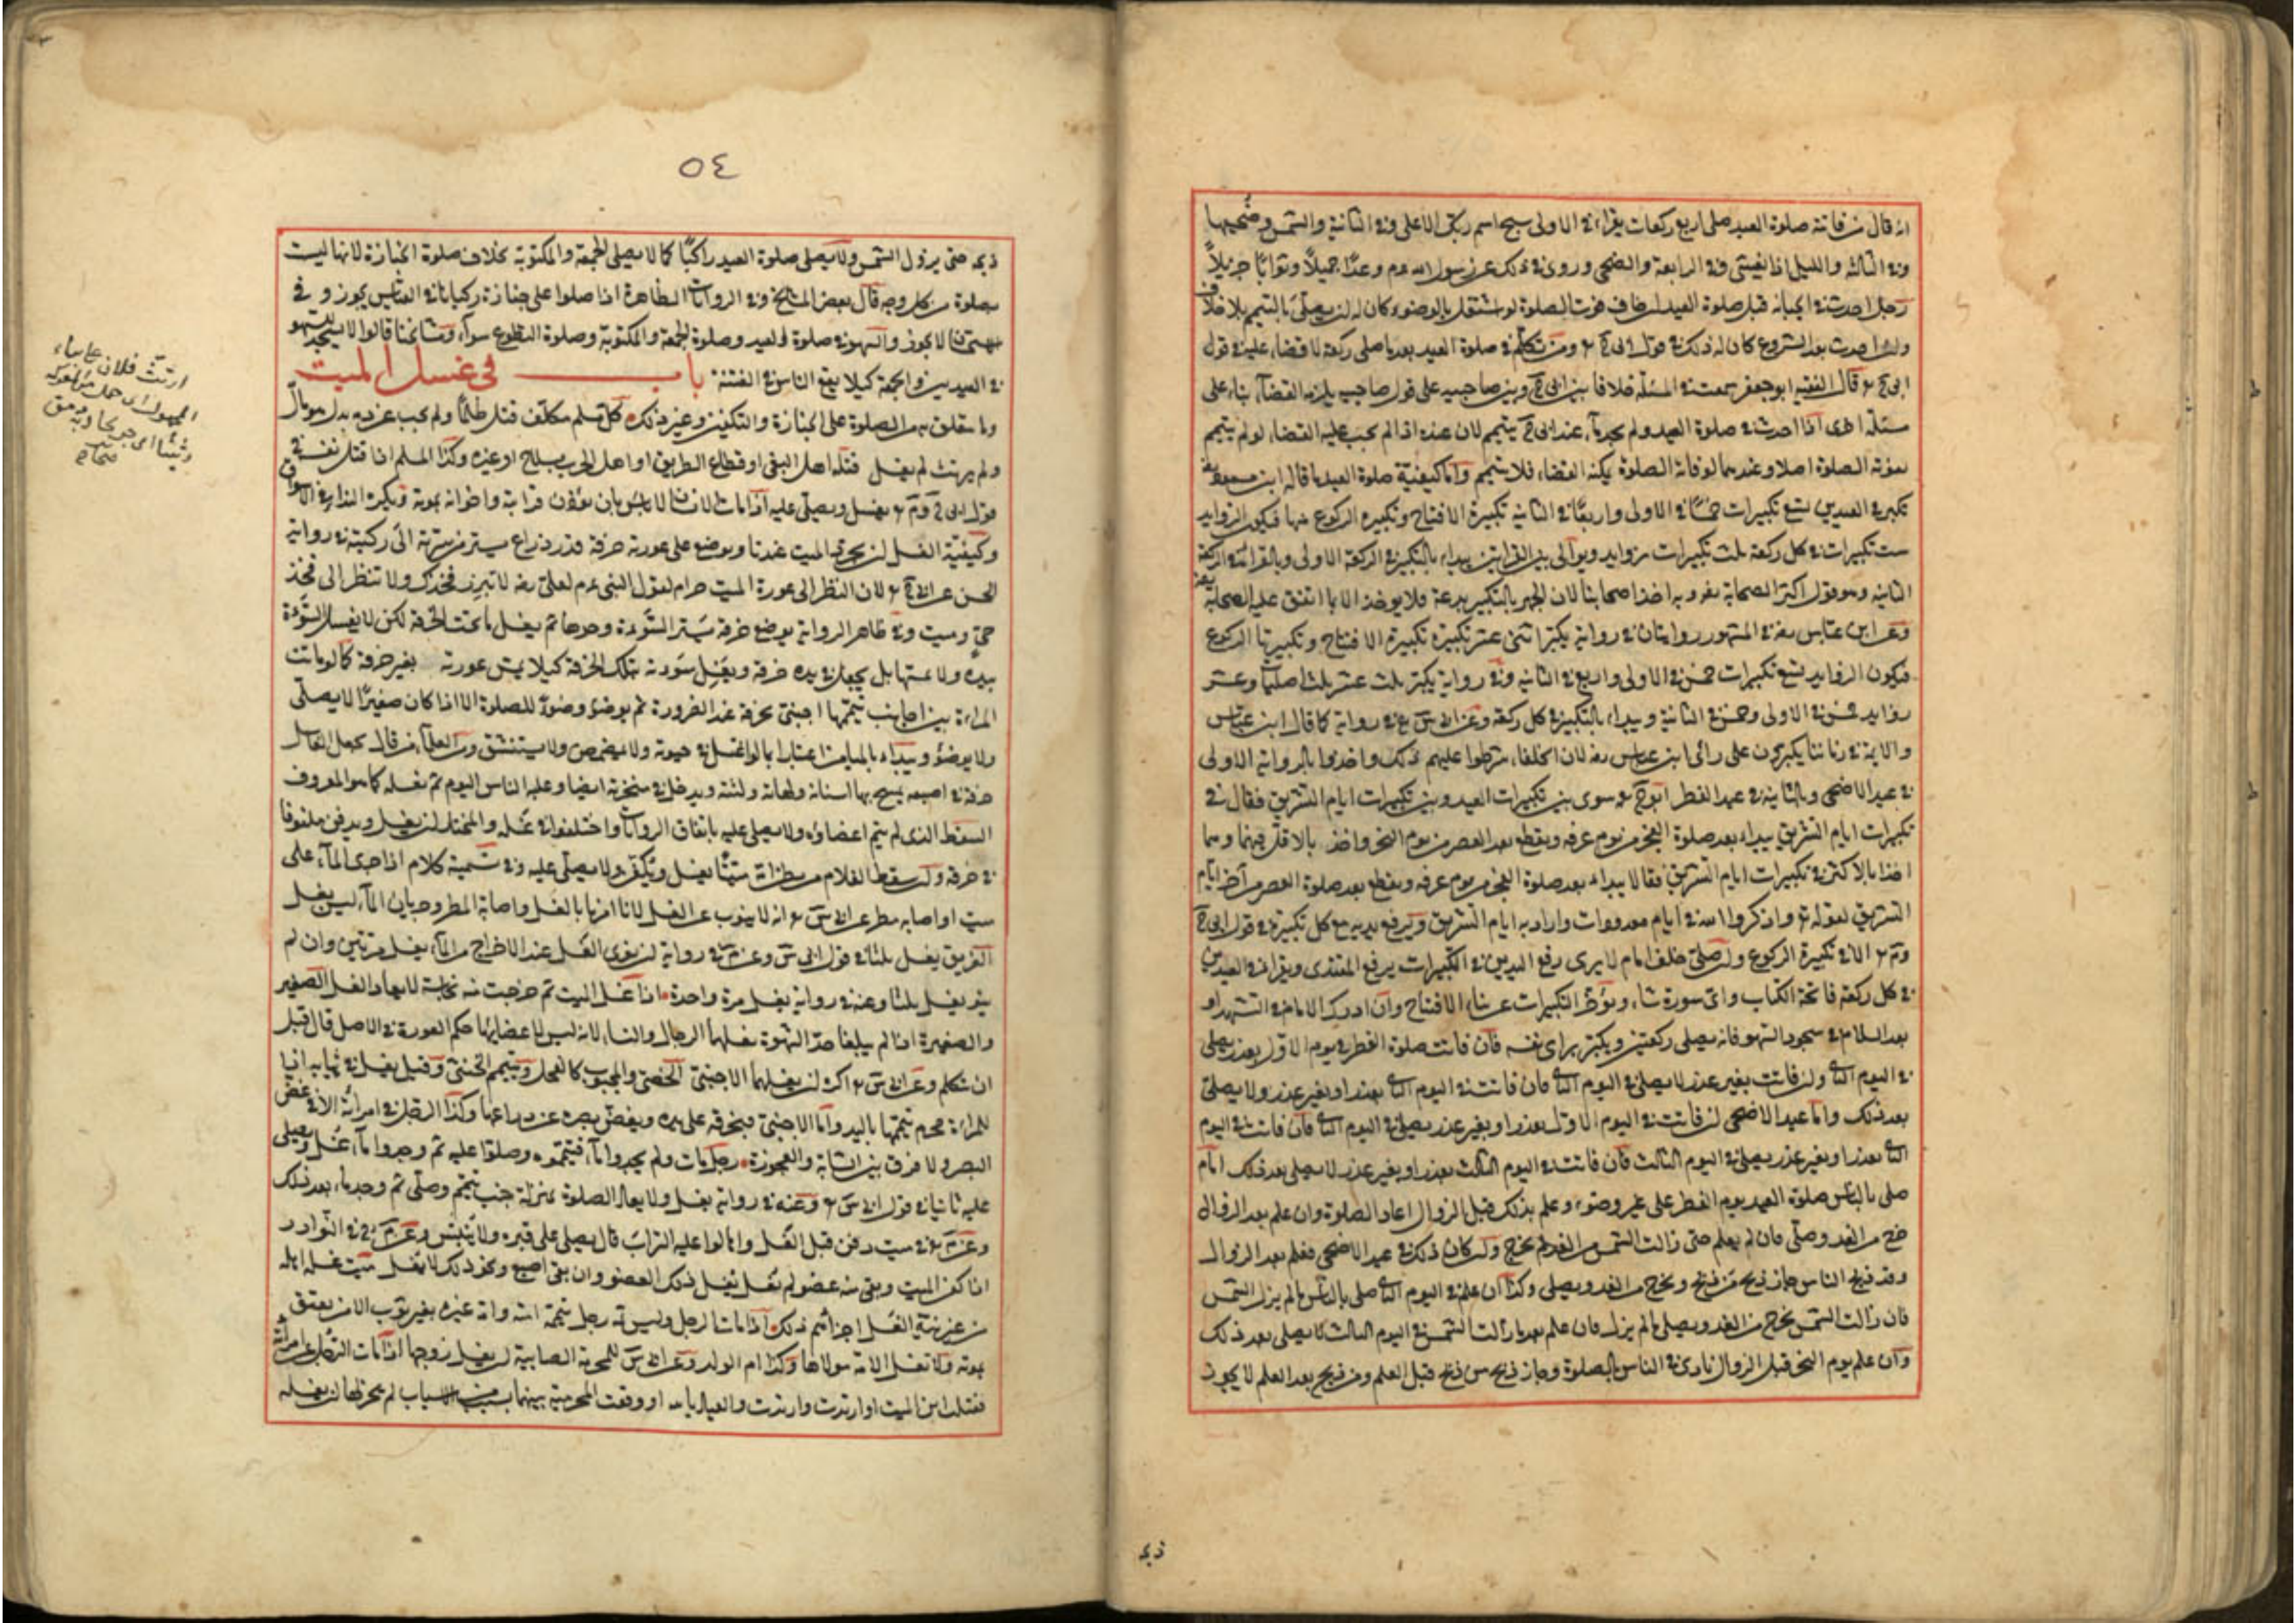 انه قال من فاتته صلوة العيد صلى اربع ركعات يقرا في الاولى سبح اسم ربك الاعلى وفي الثانية والشمس وضحيها
وفي الثالثة والليل اذا يغشى وفي الرابعة والضحى وروى في ذلك عن رسول الله وعدا جميلا وثوابا جزيلا
رجل احدث في الجبانة قبل صلوة العيد ان خاف فوت الصلوة لو اشتغل بالوضوء كان له ان يصلي بالتيمم بلا خلاف
وان احدث بعد الشروع كان له ذلك في قول ابي ح ومن تكلم في صلوة العيد بعد ما صلى ركعة لا قضاء عليه في قول
ابي ح قال الفقيه ابو جعفر سمعت في المسئلة خلافا بين ابي ح وبين صاحبيه على قول صاحبيه يلزمه القضاء بناء على
مسئلة اخرى اذا احدث في صلوة العيد ولم يجد ماء عند ابي ح يتيمم لان عنده اذا لم يجب عليه القضاء لو لم يتيمم
تفوته الصلوة اصلا وعندهما لو فاتة الصلوة يمكنه القضاء فلا يتيمم واما كيفية صلوة العيد ما قاله ابن مسعود
تكبر في العيدين تسع تكبيرات خمسا في الاولى واربعا في الثانية تكبيرة الافتاح وتكبيرة الركوع منها فيكون الزوايد
ست تكبيرات في كل ركعة ثلث تكبيرات زوايد ويوالى بين القراتين يبداء بالتكبير في الركعة الاولى وبالقرائة في الركعة
الثانية وهو قول اكثر الصحابة وبه اخذ اصحابنا لان الجهر بالتكبير بدعة فلا يوخذ الا بما اتفق عليه الصحابة
وعن ابن عباس في المشهور روايتان في رواية يكبر اثنى عشر تكبيرة تكبيرة الافتاح وتكبيرتا الركوع
فيكون الزوايد تسع تكبيرات خمس في الاولى واربع في الثانية وفي رواية يكبر ثلث عشر ثلث اصليات وعشر
زوايد خمس في الاولى وخمس في الثانية ويبداء بالتكبير في كل ركعة وعن ابي س في رواية كما قال ابن عباس
والايمة في زماننا يكبرون على رأى ابن عباس لان الخلفاء شرطوا عليهم ذلك واخذوا بالرواية الاولى
في عيد الاضحى وبالثانية في عيد الفطر ابو ح سوى بين تكبيرات العيد وبين تكبيرات ايام التشريق فقال في
تكبيرات ايام التشريق يبداء بعد صلوة الفجر من يوم عرفة ويقطع بعد العصر من يوم النحر واخذ بالاقل فيهما وهما
اخذا بالاكثر في تكبيرات ايام التشريق فقالا يبداء بعد صلوة الفجر من يوم عرفة ويقطع بعد صلوة العصر من آخر ايام
التشريق لقوله واذكروا الله في ايام معدودات واراد به ايام التشريق ويرفع يديه مع كل تكبيرة في قول ابي ح
وم الا في تكبيرة الركوع وان صلى خلف امام لا يرى رفع اليدين في التكبيرات يرفع المقتدى ويقرا في العيدين
في كل ركعة فاتحة الكتاب واى سورة شاء ويؤخر التكبيرات عن ثناء الافتتاح وان ادرك الامام في التشهد او
بعد السلام في سجود السهو فانه يصلى ركعتين ويكبر براى نفسه فان فاتت صلوة الفطر في يوم الاول بعذر يصلى
في اليوم الثاني وان فاتت بغير عذر لا يصلى في اليوم الثاني فان فاتت في اليوم الثاني بعذر او بغير عذر ولا يصلى
بعد ذلك واما عيد الاضحى ان فاتت في اليوم الاول بعذر او بغير عذر يصلى في اليوم الثاني فان فاتت في اليوم
الثاني بعذر او بغير عذر يصلى في اليوم الثالث فان فاتت في اليوم الثالث بعذر او بغير عذر لا يصلى بعد ذلك امام
صلى بالناس صلوة العيد يوم الفطر على غير وضوء وعلم بذلك قبل الزوال اعاد الصلوة وان علم بعد الزوال
خرج من الغد وصلى فان لم يعلم حتى زالت الشمس من الغد لم يخرج وان كان ذلك في عيد الاضحى فعلم بعد الزوال
وقد ذبح الناس جاز ذبح من ذبح ويخرج من الغد ويصلى وكذا ان علم في اليوم الثاني صلى بالناس ما لم يزل الشمس
فان زالت الشمس يخرج من الغد ويصلى ما لم يزل فان علم بعد ما زالت الشمس في اليوم الثالث لا يصلى بعد ذلك
وان علم يوم النحر قبل الزوال نادى في الناس بالصلوة وجاز ذبح من ذبح قبل العلم ومن ذبح بعد العلم لا يجوز
ذبحه
٥٤
ذبحه حتى يزول الشمس ولا يصلى صلوة العيد راكبا كما لا يصلى الجمعة والمكتوبة بخلاف صلوة الجنازة لانها ليست
بصلوة من كل وجه قال بعض المشايخ وفي الروايات الظاهرة اذا صلوا على جنازة ركبانا في القياس يجوز وفي
الاستحسان لا يجوز والسهو في صلوة العيد وصلوة الجمعة والمكتوبة وصلوة التطوع سواء ومشايخنا قالوا لا يسجد للسهو
في العيدين والجمعة كيلا يقع الناس في الفتنة باب في غسل الميت
وما يتعلق به من الصلوة على الجنازة والتكفين وغير ذلك كل مسلم مكلف قتل ظلما ولم يجب عن دمه بدل هو مال
ولم يرتث لم يغسل قتله اهل البغى او قطاع الطريق او اهل الحرب بسلاح او غيره وكذا المسلم اذا قتل نفسه في
قول ابي ح وم يغسل ويصلى عليه اذا مات الانسان لا باس بان يؤذن قرابته واخوانه بموته ويكره النداء في الاسواق
وكيفية الغسل ان يجرد الميت عندنا ويوضع على عورته خرقة قدر ذراع يستر من سرته الى ركبته في رواية
الحسن عن ابي ح لان النظر الى عورة الميت حرام لقول النبي لعلى لا تبرز فخذك ولا تنظر الى فخذ
حي وميت وفي ظاهر الرواية يوضع خرقة يستر السوءة وحدها ثم يغسل ما تحت الخرقة لكن لا يغسل السوءة
بيده ولا يمسها بل يجعل في يده خرقة ويغسل سوءته بتلك الخرقة كيلا يمس عورته بغير خرقة كما لو ماتت
المراءة بين اجانب تيممها اجنبى بخرقة عند الضرورة ثم يوضؤ وضوءه للصلوة الا اذا كان صغيرا لا يصلى
ولا يوضؤ ويبداء بالميامن اعتبارا بما لو اغتسل في حيوته ولا يمضمض ولا يستنشق ومن العلماء من قال يجعل الغاسل
خرقة في اصبعه يمسح بها اسنانه ولهاته ولثته ويدخل في منخريه ايضا وعليه الناس اليوم ثم يغسله كما هو المعروف
السقط الذى لم يتم اعضاؤه لا يصلى عليه باتفاق الروايات واختلفوا في غسله والمختار ان يغسل ويدفن ملفوفا
في خرقة
ميت او اصابه مطر عن ابي س انه لا ينوب عن الغسل لانا امرنا بالغسل واصابة المطر وجريان الماء ليس بغسل
الغريق يغسل ثلثا في قول ابي س وعن م في رواية ان نوى الغسل عند الاخراج من الماء يغسل مرتين وان لم
ينو يغسل ثلثا وعنه في رواية يغسل مرة واحدة اذا غسل الميت ثم خرجت منه نجاسة لا يعاد الغسل الصغير
والصغيرة اذا لم يبلغا حد الشهوة يغسلهما الرجال والنساء لانه ليس لاعضائهما حكم العورة في الاصل قال قبل
ان يتكلم وعن ابي س اكره ان يغسلهما الاجنبى الخصى والمجبوب كالفحل ويتيمم الخنثى وقيل يغسل في ثيابه اذا
للمراءة محرم تيممها باليد واما الاجنبى فبخرقة على يده ويغض بصره عن ذراعها وكذا الرجل في امرأته الا في غض
البصر ولا فرق بين الشابة والعجوزة رجل مات ولم يجدوا ماء فيتمموه وصلوا عليه ثم وجدوا ماء غسل ويصلى
عليه ثانيا في قول ابي س وعنه في رواية يغسل ولا يعاد الصلوة بمنزلة جنب تيمم وصلى ثم وجد ماء بعد ذلك
وعن م في ميت دفن قبل الغسل واهالوا عليه التراب قال يصلى على قبره ولا ينبش وعن م في النوادر
اذا كفن الميت وبقى منه عضو لم يغسل يغسل ذلك العضو وان بقى اصبع ونحو ذلك لا يغسل ميت غسله اهله
من غير نية الغسل اجزاهم ذلك اذا مات الرجل وليس ثمة رجل تيممه امته وامة غيره بغير ثوب الا من يعتق
بموته ولا تغسل الامة مولاها وكذا ام الولد وعن ابي س
فقبلت ابن الميت او ارتدت والعياذ بالله او وقعت المحرمية بينهما بسبب من الاسباب لم يجز لها ان تغسله
ارتث فلان على بناء
المجهول اى حمل من المعركة
رثيثا اى جريحا وبه رمق
صحاح